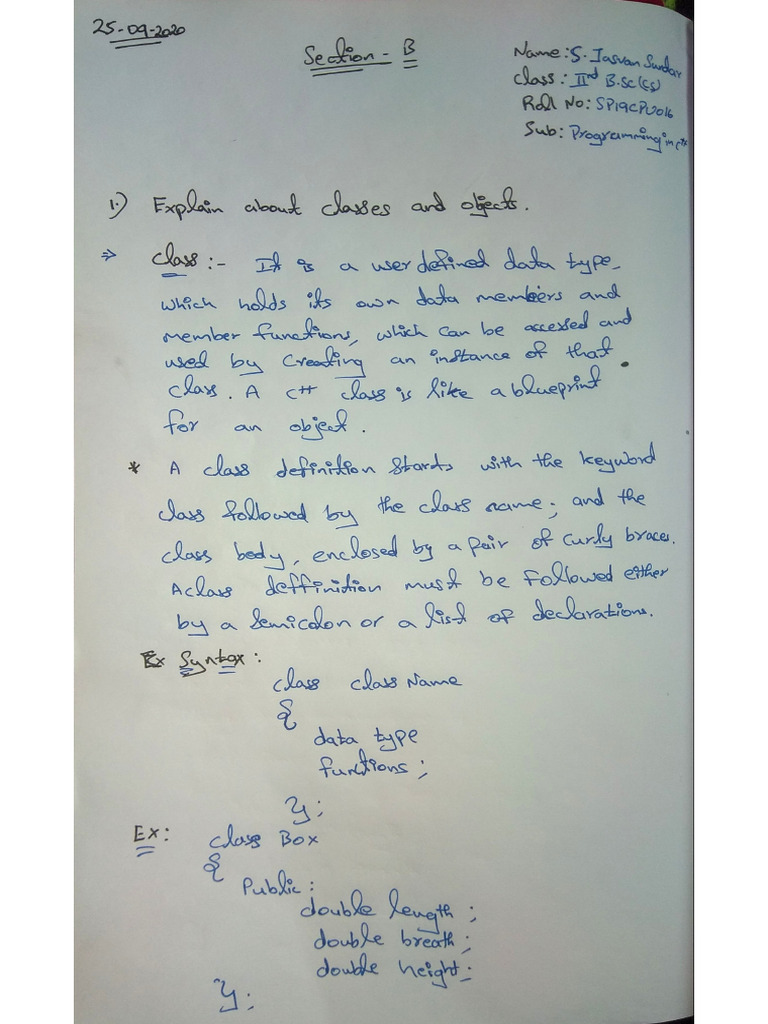 25-09-2020
Section - B
Name: S. Jasvan Sundar
Class: IInd B.Sc(CS)
Roll No: SP19CPU016
Sub: Programming in C++
1.) Explain about classes and objects.
⇒ Class:- It is a user defined data type,
which holds its own data members and
member functions, which can be accessed and
used by creating an instance of that
class. A C++ class is like a blueprint
for an object.
* A class definition starts with the keyword
class followed by the class name; and the
class body, enclosed by a pair of curly braces.
A class deffinition must be followed either
by a semicolon or a list of declarations.
Syntax:
class className
{
data type
functions;
};
Ex:
class Box
{
Public:
double length;
double breath;
double height;
};